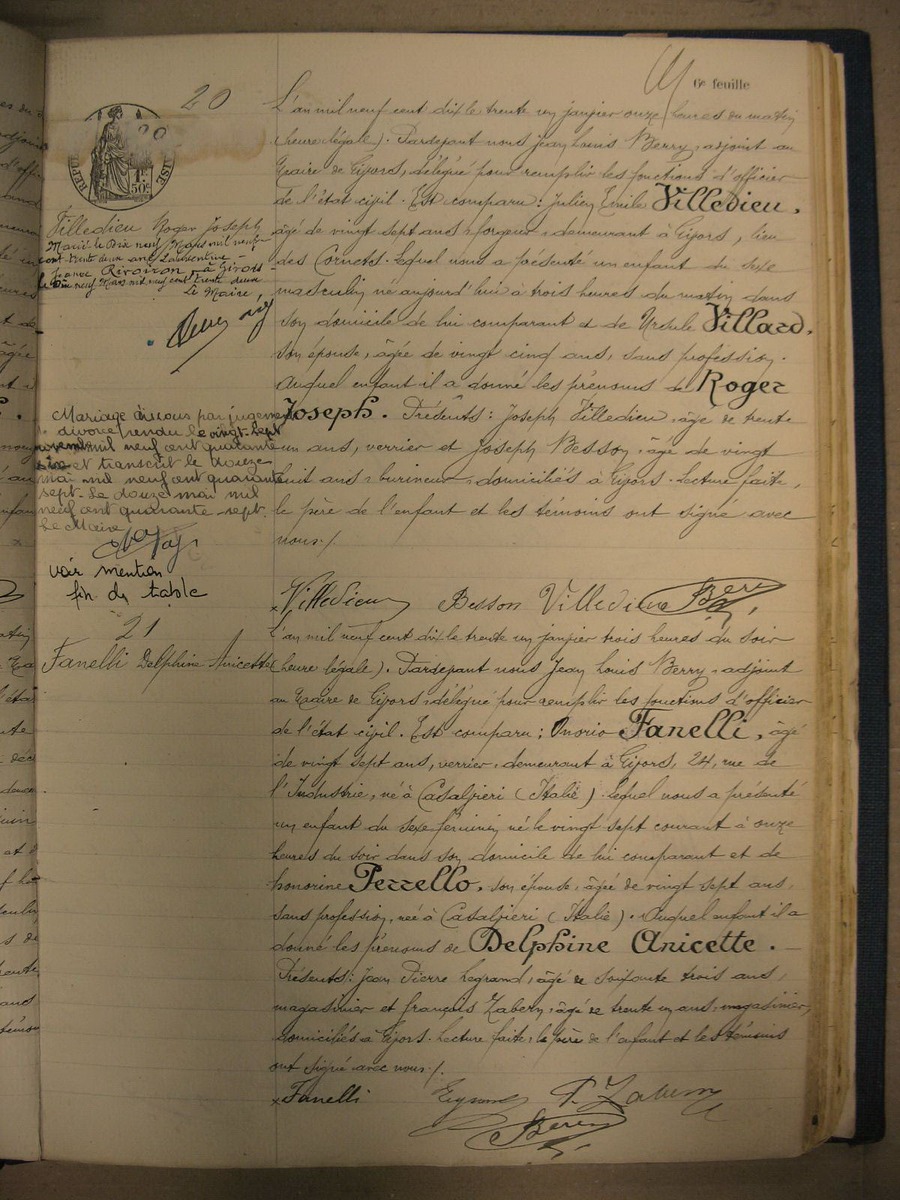 6e feuille
20
RÉPUB AISE
1F.
50c
Villedieu Roger Joseph
Marié le Dix neuf Mars mil neuf
cent trente deux avec
Jeanne Rivoiron à Givors
le Dix neuf Mars mil neuf cent trente deux
Le Maire,
Mariage dissous par jugement
de divorce rendu le vingt-sept
novembre mil neuf cent quarante
six et transcrit le douze
mai mil neuf cent quarante
sept. Le douze mai mil
neuf cent quarante-sept.
Le Maire
voir mention
fin de table
L'an mil neuf cent dix le trente un janvier onze heures du matin
(heure légale). Pardevant nous Jean Louis Berry, adjoint au
Maire de Givors, délégué pour remplir les fonctions d'officier
de l'état civil. Est comparu: Julien Emile Villedieu,
âgé de vingt sept ans, forgeur, demeurant à Givors, lieu
des Cornets. Lequel nous a présenté un enfant du sexe
masculin né aujourd'hui à trois heures du matin dans
son domicile de lui comparant et de Ursule Villard,
son épouse, âgée de vingt cinq ans, sans profession.
Auquel enfant il a donné les prénoms de Roger
Joseph. Présents: Joseph Villedieu, âgé de trente
un ans, verrier et Joseph Besson, âgé de vingt
huit ans, burineur, domiciliés à Givors. Lecture faite,
le père de l'enfant et les témoins ont signé avec
nous./.
x Villedieu Besson Villedieu Berry
21
Fanelli Delphine Anicette
L'an mil neuf cent dix le trente un janvier trois heures du soir
(heure légale). Pardevant nous Jean Louis Berry, adjoint
au Maire de Givors, délégué pour remplir les fonctions d'officier
de l'état civil. Est comparu: Onorio Fanelli, âgé
de vingt sept ans, verrier, demeurant à Givors, 24, rue de
l'Industrie, né à Casalvieri (Italie). Lequel nous a présenté
un enfant du sexe féminin né le vingt sept courant à onze
heures du soir dans son domicile de lui comparant et de
honorine Perrello, son épouse, âgée de vingt sept ans,
sans profession, née à Casalvieri (Italie). Auquel enfant il a
donné les prénoms de Delphine Anicette.
Présents: Jean Pierre Legrand, âgé de soixante trois ans,
magasinier et françois Zabern, âgé de trente un ans, magasinier,
domiciliés à Givors. Lecture faite, le père de l'enfant et les témoins
ont signé avec nous./.
x Fanelli F. Zabern
Berry